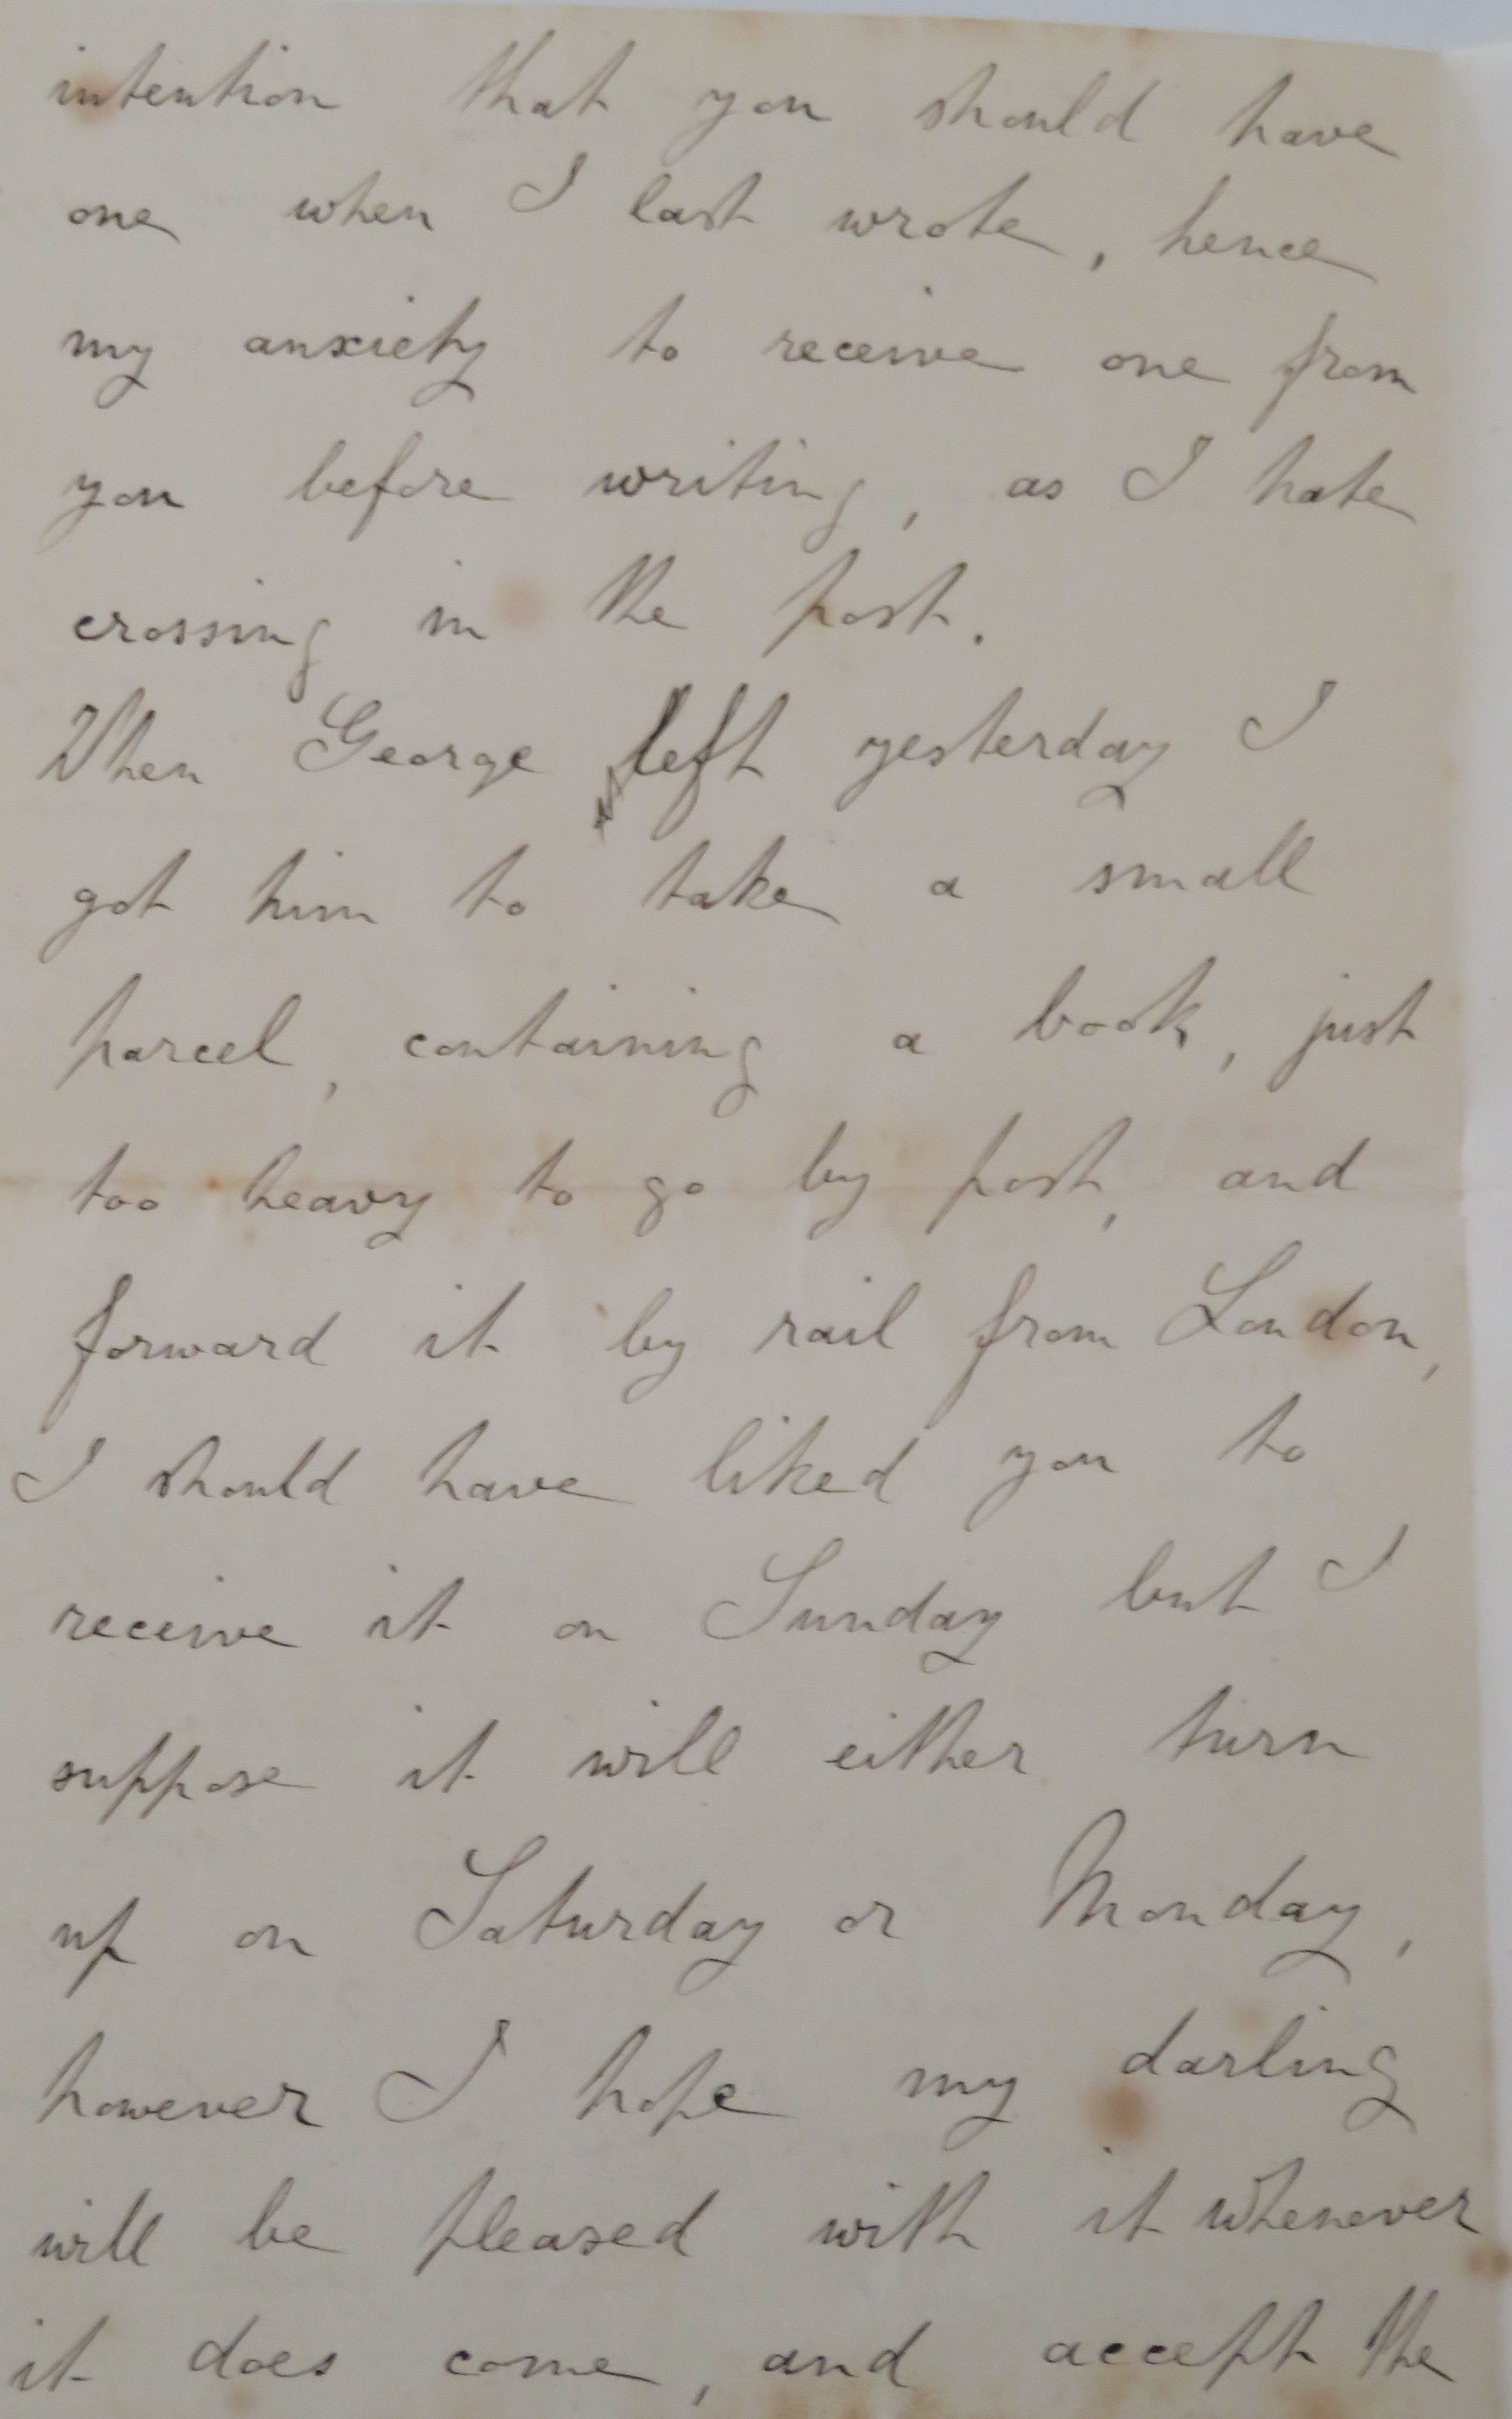 intention that you should have
one when I last wrote, hence
my anxiety to receive one from
you before writing, as I hate
crossing in the post.
When George left yesterday I
got him to take a small
parcel, containing a book, just
too heavy to go by post, and
forward it by rail from London,
I should have liked you to
receive it on Sunday but I
suppose it will either turn
up on Saturday or Monday,
however I hope my darling
will be pleased with it whenever
it does come, and accept the